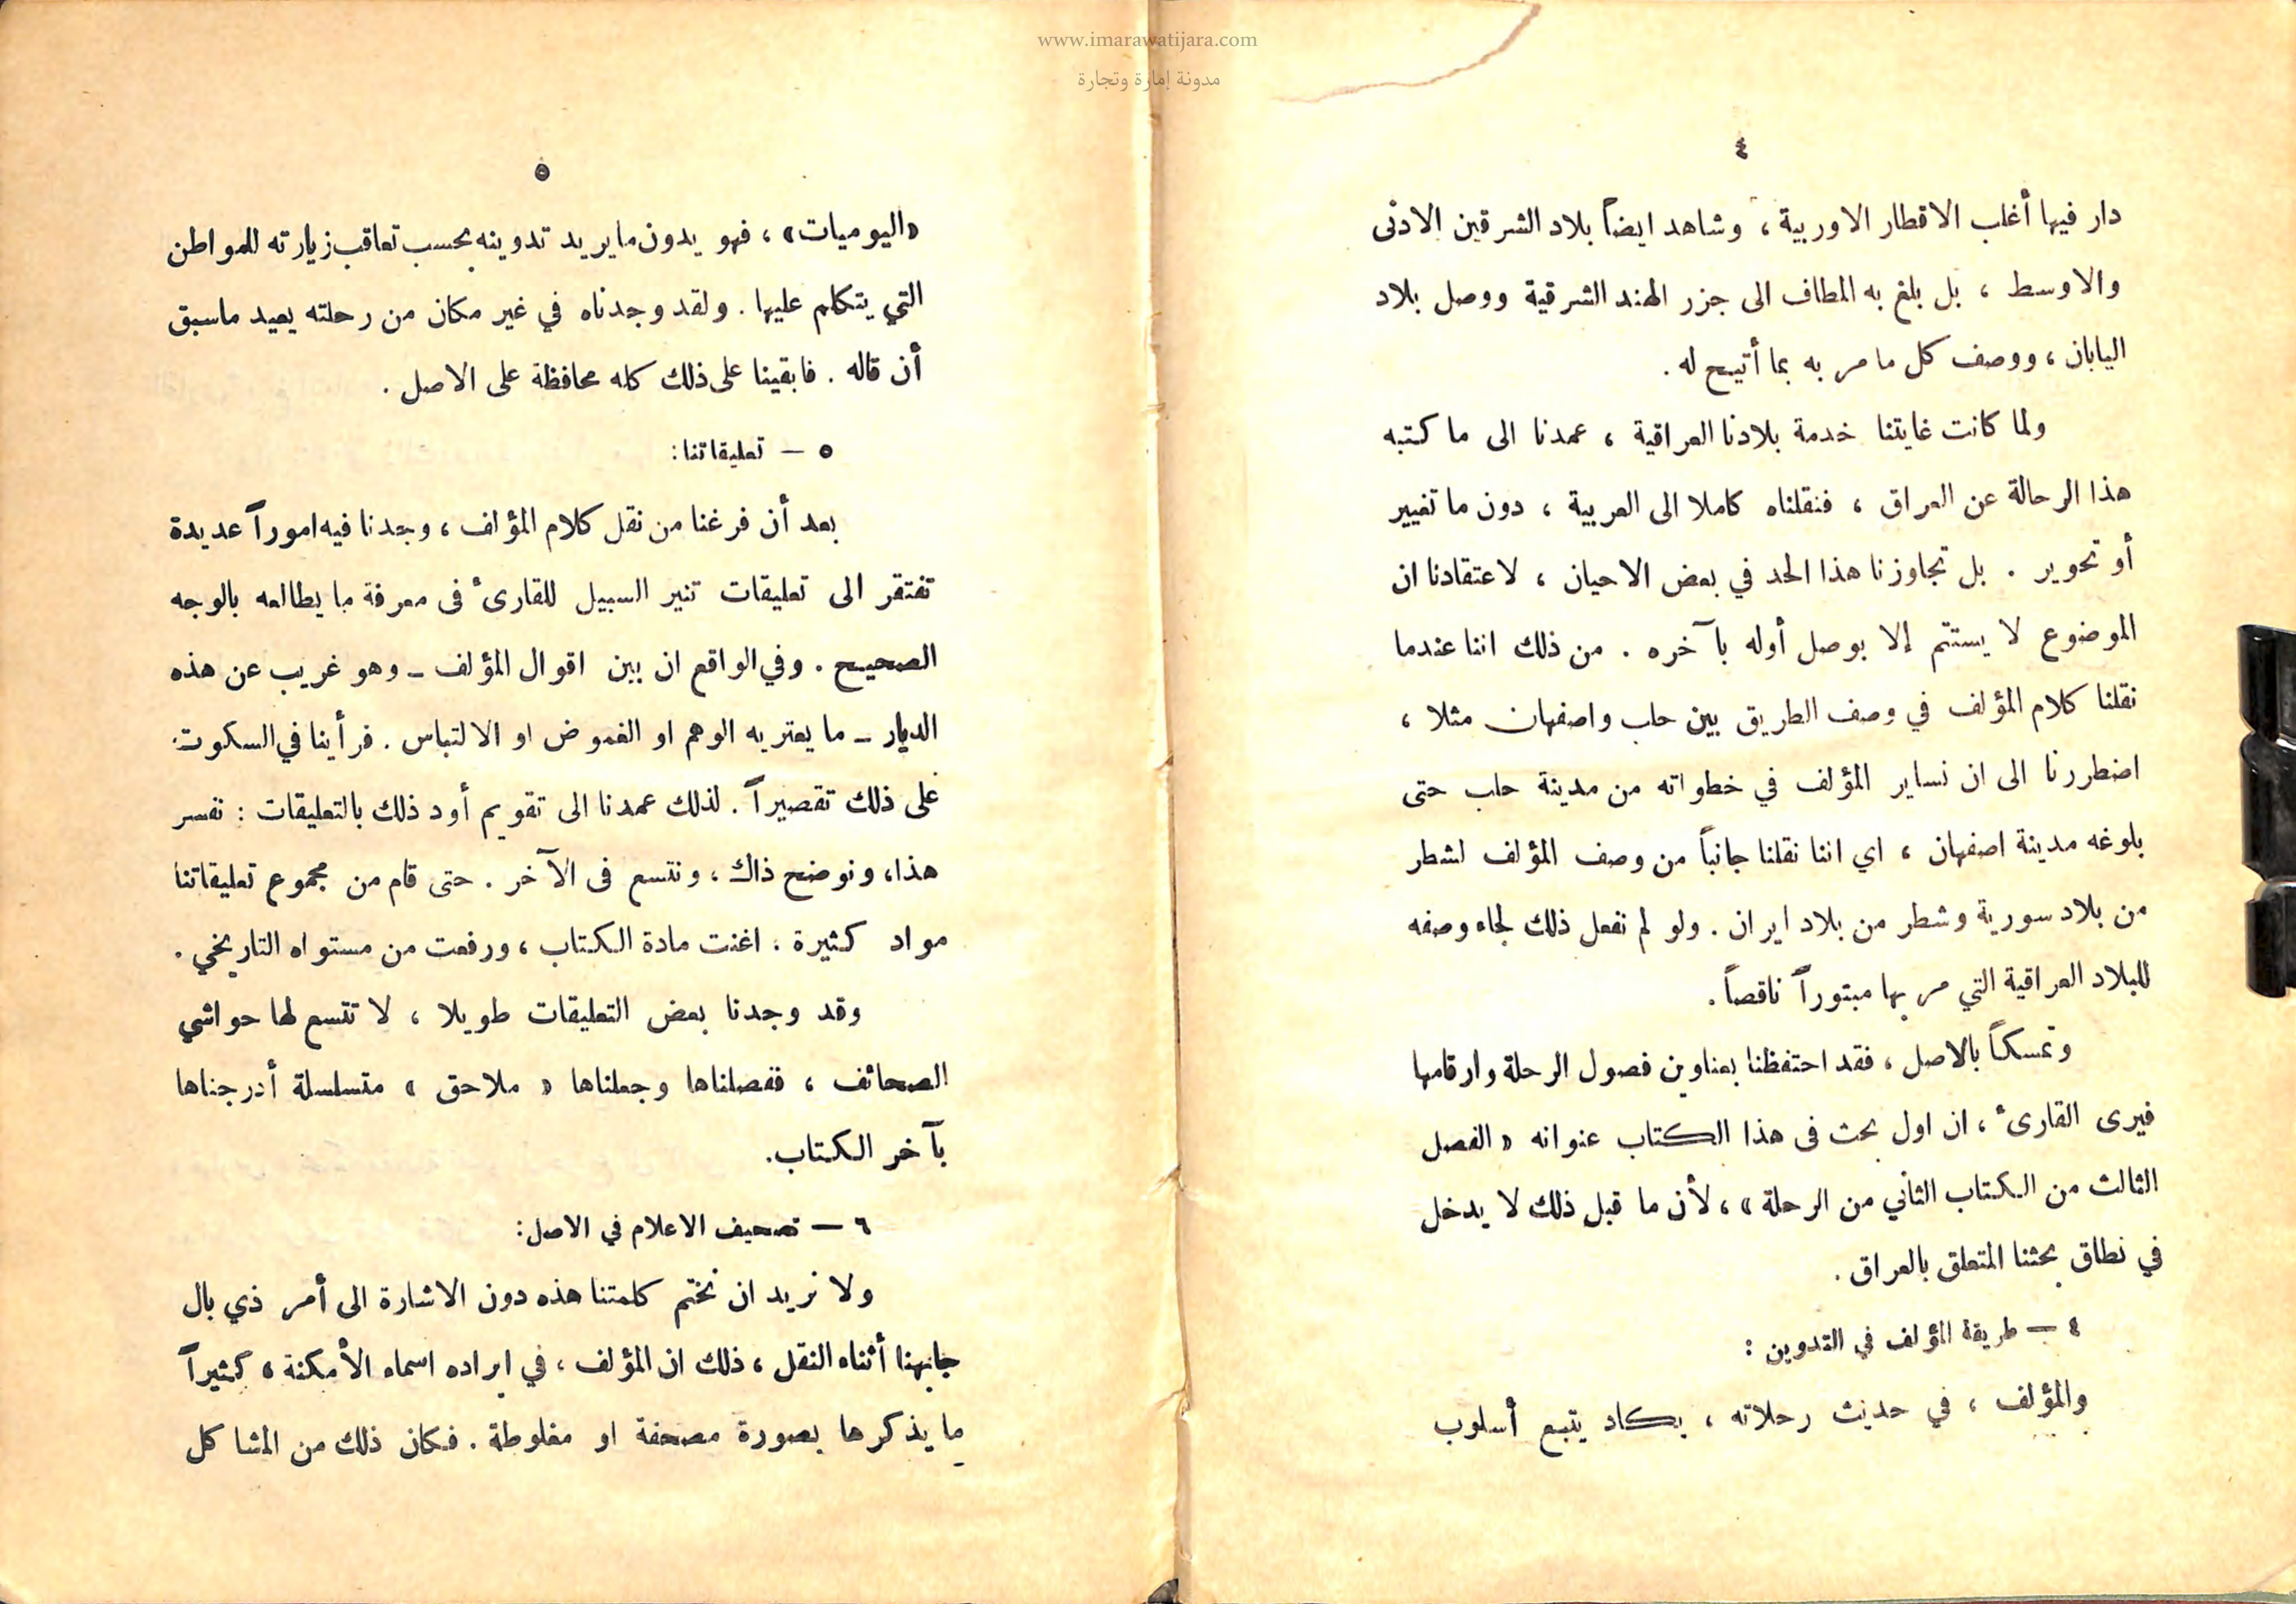 www.imarawatijara.com
مدونة إمارة وتجارة
٤
دار فيها أغلب الاقطار الاوربية ، وشاهد ايضاً بلاد الشرقين الادنى
والاوسط ، بل بلغ به المطاف الى جزر الهند الشرقية ووصل بلاد
اليابان ، ووصف كل ما مر به بما أتيح له .
ولما كانت غايتنا خدمة بلادنا العراقية ، عمدنا الى ما كتبه
هذا الرحالة عن العراق ، فنقلناه كاملا الى العربية ، دون ما تغيير
أو تحوير . بل تجاوزنا هذا الحد في بعض الاحيان ، لاعتقادنا ان
الموضوع لا يستتم إلا بوصل أوله بآخره . من ذلك اننا عندما
نقلنا كلام المؤلف في وصف الطريق بين حلب واصفهان مثلا ،
اضطررنا الى ان نساير المؤلف في خطواته من مدينة حلب حتى
بلوغه مدينة اصفهان ، اي اننا نقلنا جانباً من وصف المؤلف لشطر
من بلاد سورية وشطر من بلاد ايران . ولو لم نفعل ذلك لجاء وصفه
للبلاد العراقية التي مر بها مبتوراً ناقصاً .
وتمسكاً بالاصل ، فقد احتفظنا بعناوين فصول الرحلة وارقامها
فيرى القارىء ، ان اول بحث فى هذا الكتاب عنوانه « الفصل
الثالث من الكتاب الثاني من الرحلة » ، لأن ما قبل ذلك لا يدخل
في نطاق بحثنا المتعلق بالعراق .
٤ — طريقة المؤلف في التدوين :
والمؤلف ، في حديث رحلاته ، يكاد يتبع أسلوب
٥
«اليوميات» ، فهو يدون ما يريد تدوينه بحسب تعاقب زيارته للمواطن
التي يتكلم عليها . ولقد وجدناه في غير مكان من رحلته يعيد ماسبق
أن قاله . فابقينا على ذلك كله محافظة على الاصل .
٥ — تعليقاتنا :
بعد أن فرغنا من نقل كلام المؤلف ، وجدنا فيه اموراً عديدة
تفتقر الى تعليقات تنير السبيل للقارىء فى معرفة ما يطالعه بالوجه
الصحيح . وفي الواقع ان بين اقوال المؤلف - وهو غريب عن هذه
الديار - ما يعتريه الوهم او الغموض او الالتباس . فرأينا في السكوت
على ذلك تقصيراً . لذلك عمدنا الى تقويم أود ذلك بالتعليقات : نفسر
هذا ، ونوضح ذاك ، ونتسع فى الآخر . حتى قام من مجموع تعليقاتنا
مواد كثيرة ، اغنت مادة الكتاب ، ورفعت من مستواه التاريخي .
وقد وجدنا بعض التعليقات طويلا ، لا تتسع لها حواشي
الصحائف ، ففصلناها وجعلناها « ملاحق » متسلسلة أدرجناها
بآخر الكتاب .
٦ — تصحيف الاعلام في الاصل :
ولا نريد ان نختم كلمتنا هذه دون الاشارة الى أمر ذي بال
جابهنا أثناء النقل ، ذلك ان المؤلف ، في ايراده اسماء الأمكنة ، كثيراً
ما يذكرها بصورة مصحفة او مغلوطة . فكان ذلك من المشاكل